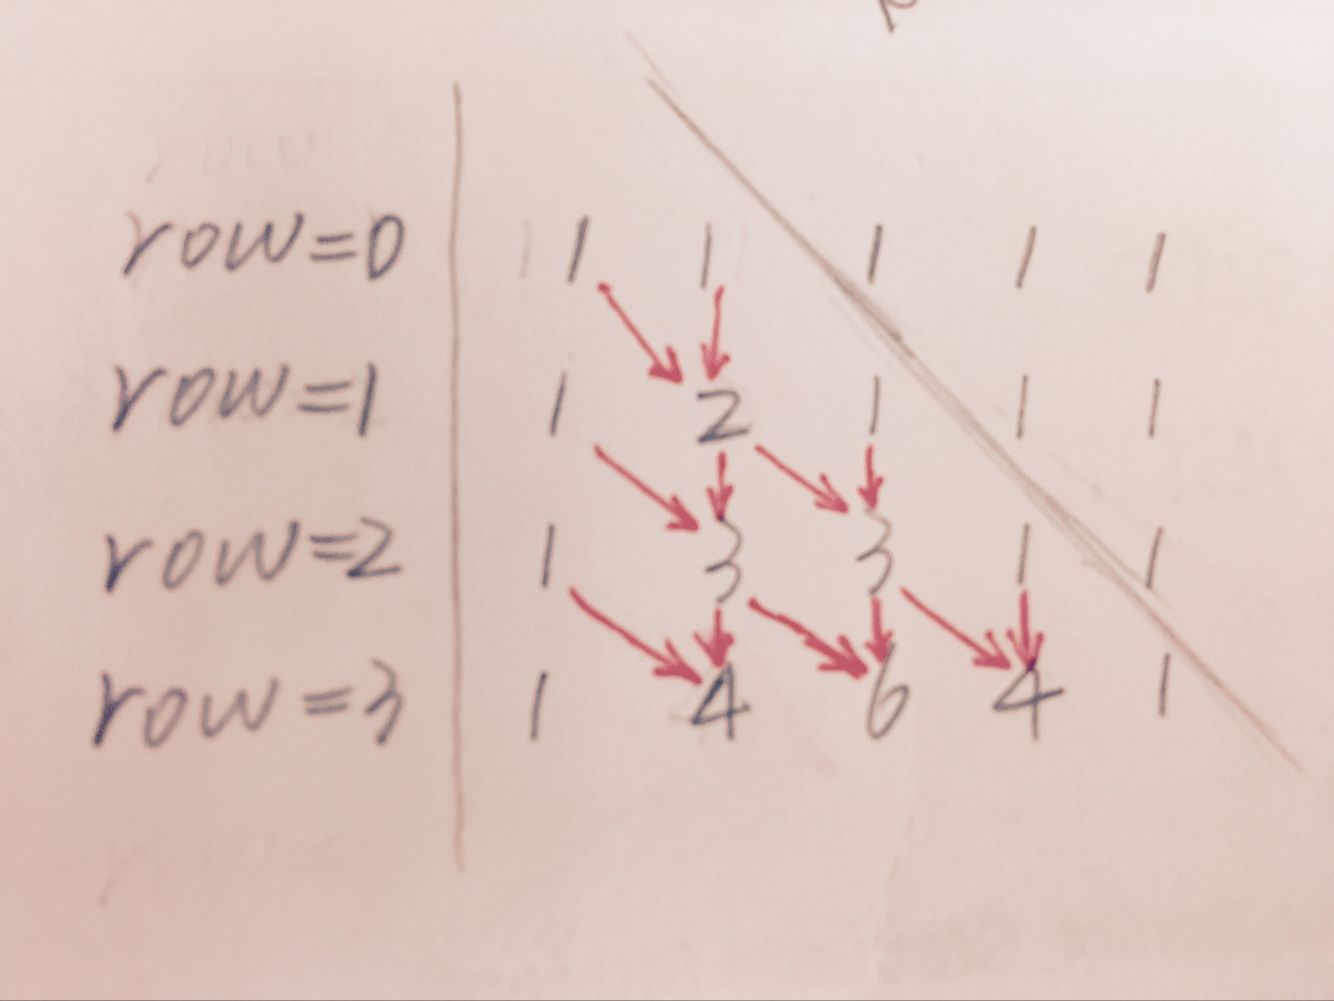 row=0 1 1 1 1 1
row=1 1 2 1 1 1
row=2 1 3 3 1 1
row=3 1 4 6 4 1